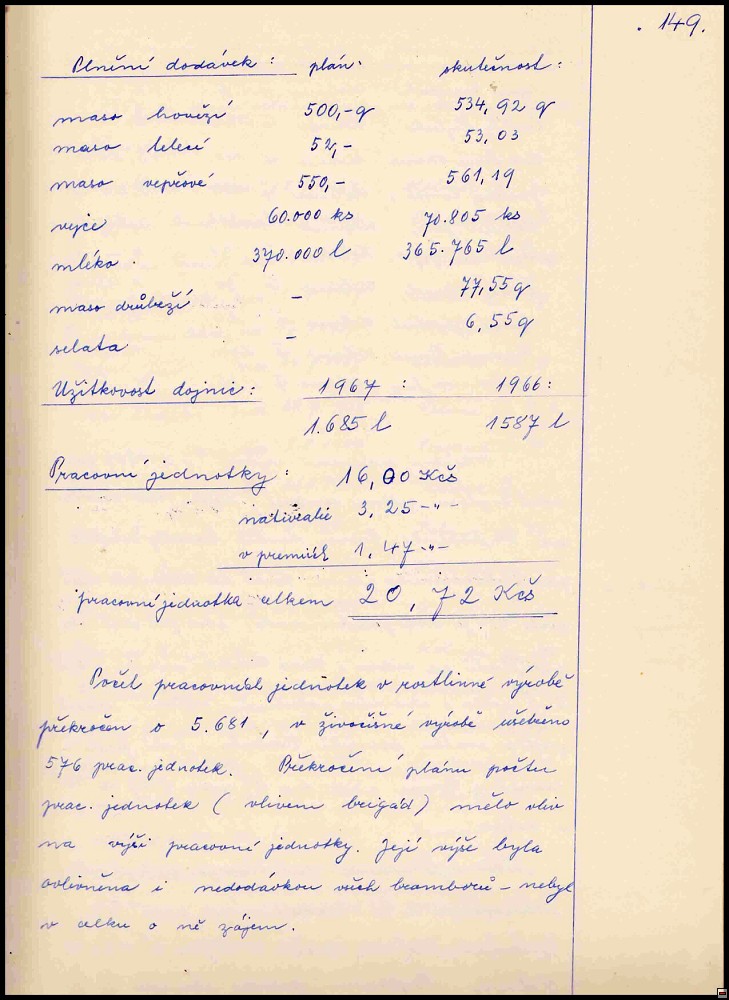 149.
Plnění dodávek : plán. skutečnost :
maso hovězí 500,- q 534,92 q
maso telecí 52,- 53,03
maso vepřové 550,- 561,19
vejce 60.000 ks 70.805 ks
mléko . 370.000 l 365.765 l
maso drůbeží - 77,55 q
selata - 6,55 q
Užitkovost dojnic : 1967 : 1966 :
1.685 l 1587 l
Pracovní jednotky : 16,00 Kčs
naturalie 3,25 -"-
v premiích 1,47 -"-
pracovní jednotka celkem 20,72 Kčs
Počet pracovních jednotek v rostlinné výrobě
překročen o 5.681, v živočišné výrobě ušetřeno
576 prac. jednotek. Překročení plánu počtu
prac. jednotek ( vlivem brigád ) mělo vliv
na výši pracovní jednotky. Její výše byla
ovlivněna i nedodávkou všech bramborů - nebyl
v celku o ně zájem.